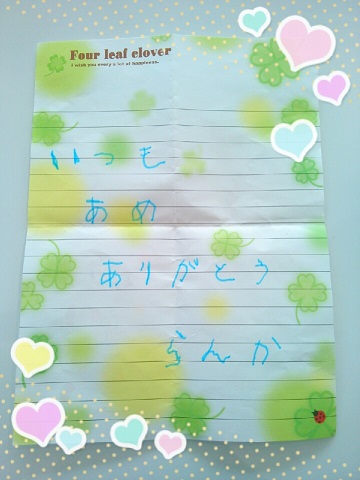 Four leaf clover
I wish you every a lot of happiness.
いつも
あめ
ありがとう
らんか